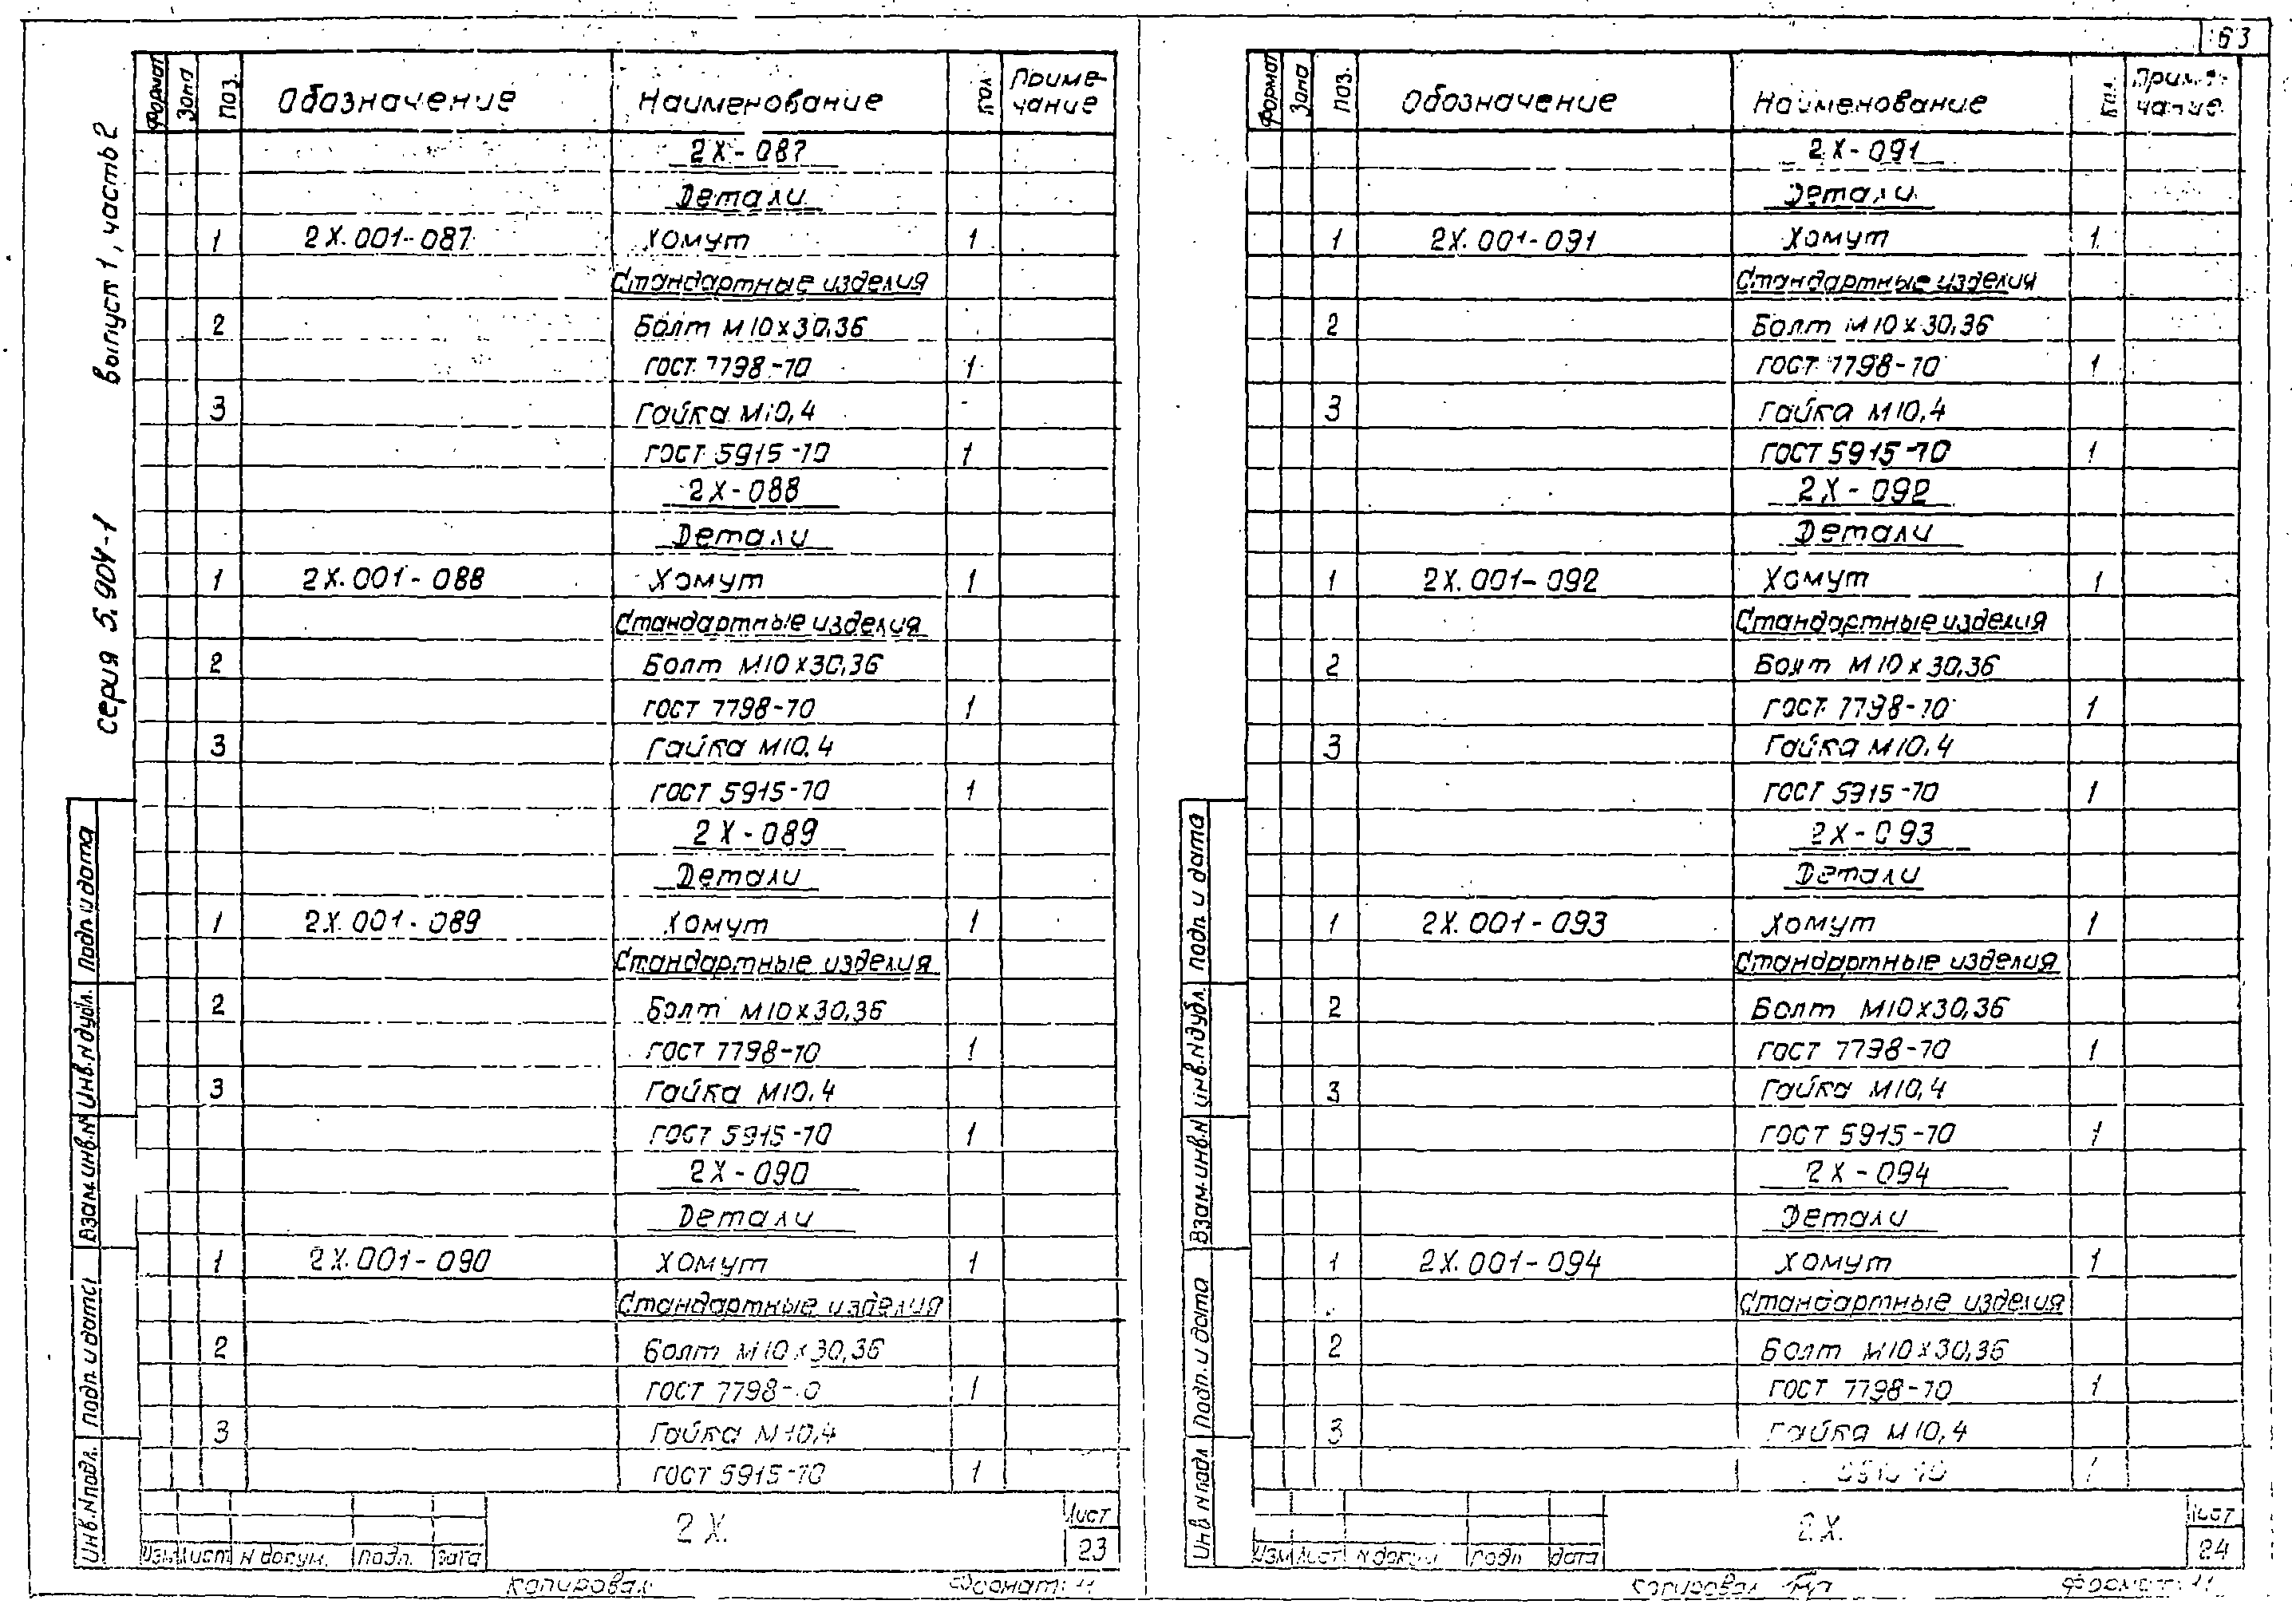 63
серия 5.904-1 выпуст 1, часть 2
Формат Зона Поз. Обозначение Наименование Кол Приме-
чание
2Х-087
Детали
1 2Х.001-087 Хомут 1
Стандартные изделия
2 Болт М10х30,36
ГОСТ 7798-70 1
3 Гайка М10,4
ГОСТ 5915-70 1
2Х-088
Детали
1 2Х.001-088 Хомут 1
Стандартные изделия
2 Болт М10х30,36
ГОСТ 7798-70 1
3 Гайка М10.4
ГОСТ 5915-70 1
2Х-089
Детали
1 2Х.001-089 Хомут 1
Стандартные изделия
2 Болт М10х30,36
ГОСТ 7798-70 1
3 Гайка М10.4
ГОСТ 5915-70 1
2Х-090
Детали
1 2Х.001-090 Хомут 1
Стандартные изделия
2 Болт М10х30,36
ГОСТ 7798- 0 1
3 Гайка М10,4
ГОСТ 5915-70 1
Инв.N подл. Подп. и дата Взам.инв.N Инв.N дубл. Подп. и дата
Изм Лист N докум. Подп. Дата
2Х.
Лист
23
Копировал Формат: 11
Формат Зона Поз. Обозначение Наименование Кол. Приме-
чание
2Х-091
Детали
1 2Х.001-091 Хомут 1
Стандартные изделия
2 Болт М10х30,36
ГОСТ 7798-70 1
3 Гайка М10,4
ГОСТ 5915-70 1
2Х-092
Детали
1 2Х.001-092 Хомут 1
Стандартные изделия
2 Болт М10х30,36
ГОСТ 7798-70 1
3 Гайка М10.4
ГОСТ 5915-70 1
2Х-093
Детали
1 2Х.001-093 Хомут 1
Стандартные изделия
2 Болт М10х30,36
ГОСТ 7798-70 1
3 Гайка М10,4
ГОСТ 5915-70 1
2Х-094
Детали
1 2Х.001-094 Хомут 1
Стандартные изделия
2 Болт М10х30,36
ГОСТ 7798-70 1
3 Гайка М10,4
1
Инв. N подл Подп. и дата Взам.инв.N Инв.N дубл. Подп. и дата
Изм Лист N докум Подп Дата
2Х.
Лист
24
Копировал Формат: 11